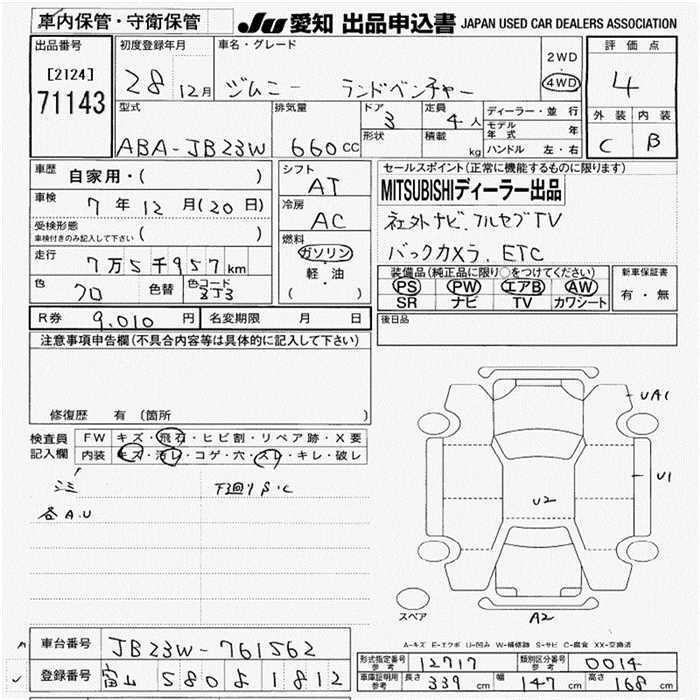 車内保管・守衛保管
JU 愛知 出品申込書 JAPAN USED CAR DEALERS ASSOCIATION
出品番号 [2124] 71143
初度登録年月 28 12月
車名・グレード ジムニー ランドベンチャー
2WD 4WD
評価点 4
外装 内装
C B
型式 ABA-JB23W
排気量 660cc
ドア 3 定員 4人
形状 積載 kg
ディーラー・並行
モデル年式 年
ハンドル 左・右
車歴 自家用・( )
車検 7年12月(20日)
受検形態 車検付きのみ記入して下さい ( )
走行 7万5千957km
色 クロ 色替 色コード ZJ3
シフト AT
冷房 AC
燃料 ガソリン・軽・油 ( )
セールスポイント(正常に機能するものに限ります)
MITSUBISHIディーラー出品
社外ナビ.フルセグTV
バックカメラ.ETC
装備品(純正品に限り○をつけてください)
PS PW エアB AW
SR ナビ TV カワシート
新車保証書 有・無
後日品
R券 9,010円 名変期限 月 日
注意事項申告欄(不具合内容等は具体的に記入して下さい)
修復歴 有 (箇所 )
検査員記入欄
FW キズ・飛石・ヒビ割・リペア跡・X要
内装 キズ・汚レ・コゲ・穴・スレ・キレ・破レ
下廻りS.C
各A.U
UA1
U1
U2
A2
スペア
A-キズ E-エクボ U-凹み W-補修跡 S-サビ C-腐食 XX-交換済
車台番号 JB23W-761562
登録番号 富山 580 よ 1812
形式指定番号 参考 12717 類別区分番号 参考 0014
車庫証明用 参考 長さ 339cm 幅 147cm 高さ 168cm